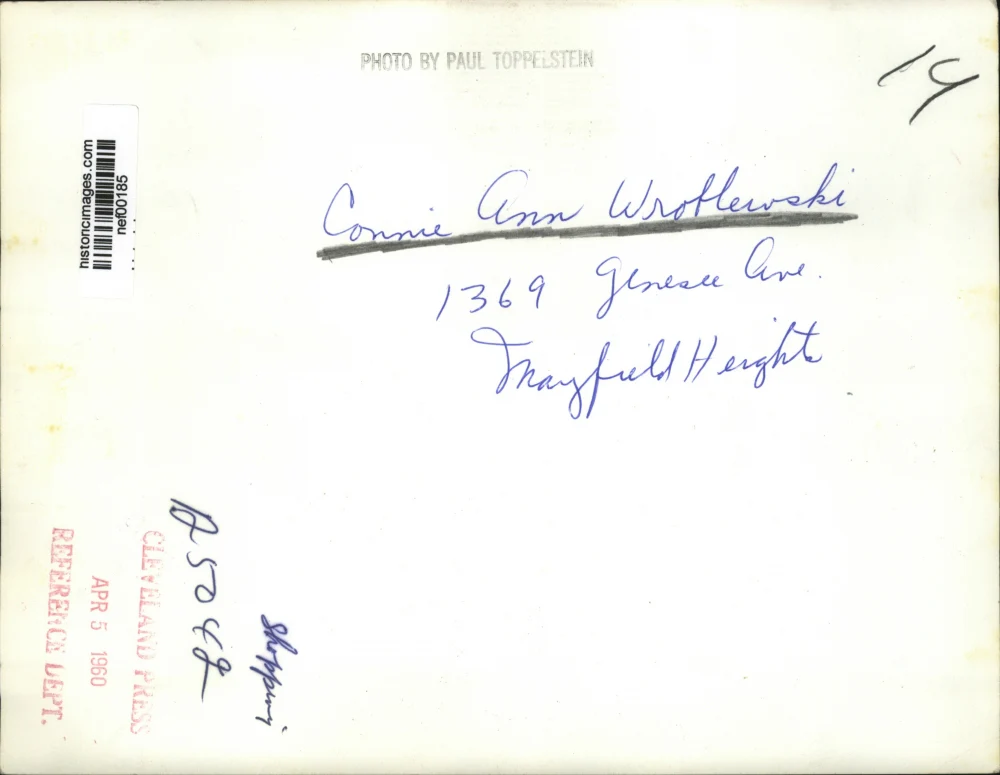 PHOTO BY PAUL TOPPELSTEIN
14
historicimages.com
nef00185
Connie Ann Wroblewski
1369 Genesee Ave.
Mayfield Heights
CLEVELAND PRESS
APR 5 1960
REFERENCE DEPT.
Shopping